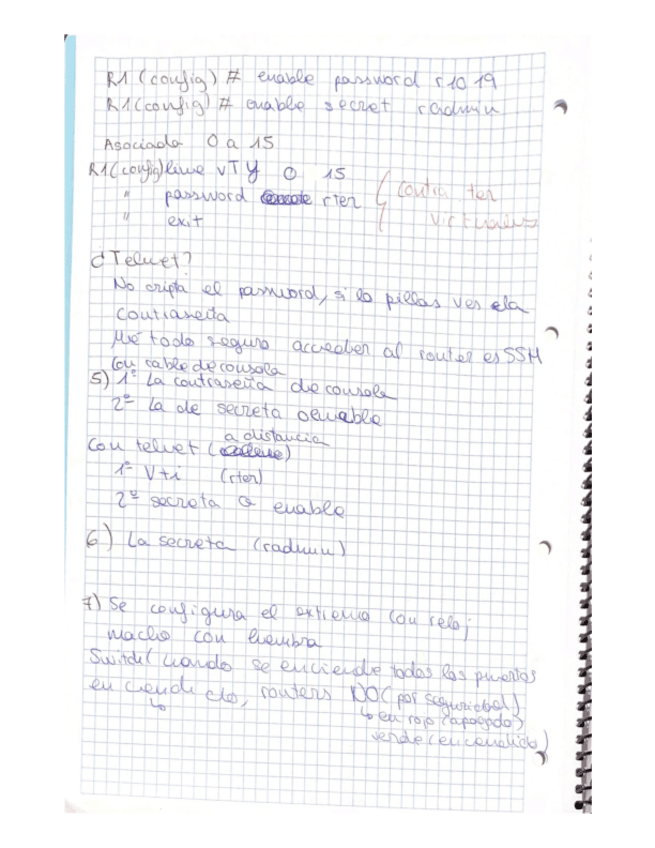 R1 (config) # enable password r1019
R1(config) # enable secret radmin
Asociada 0 a 15
R1(config)line VTY 0 15
" password rter
" exit
contra ter
virtuales
¿Telnet?
No cripta el password, si lo pillas ves ela
contraseña
Método seguro acceder al router es SSH
Con cable de consola
5) 1º La contraseña de consola
2º La de secreta o enable
a distancia
Con telnet ( )
1º Vti (rter)
2º secreta o enable
6) La secreta (radmin)
7) Se configura el extremo con reloj
macho con hembra
Switch( cuando se enciende todos los puertos
encendido, routers NO( por seguridad)
↳ ↳ en rojo (apagado)
verde (encendido)